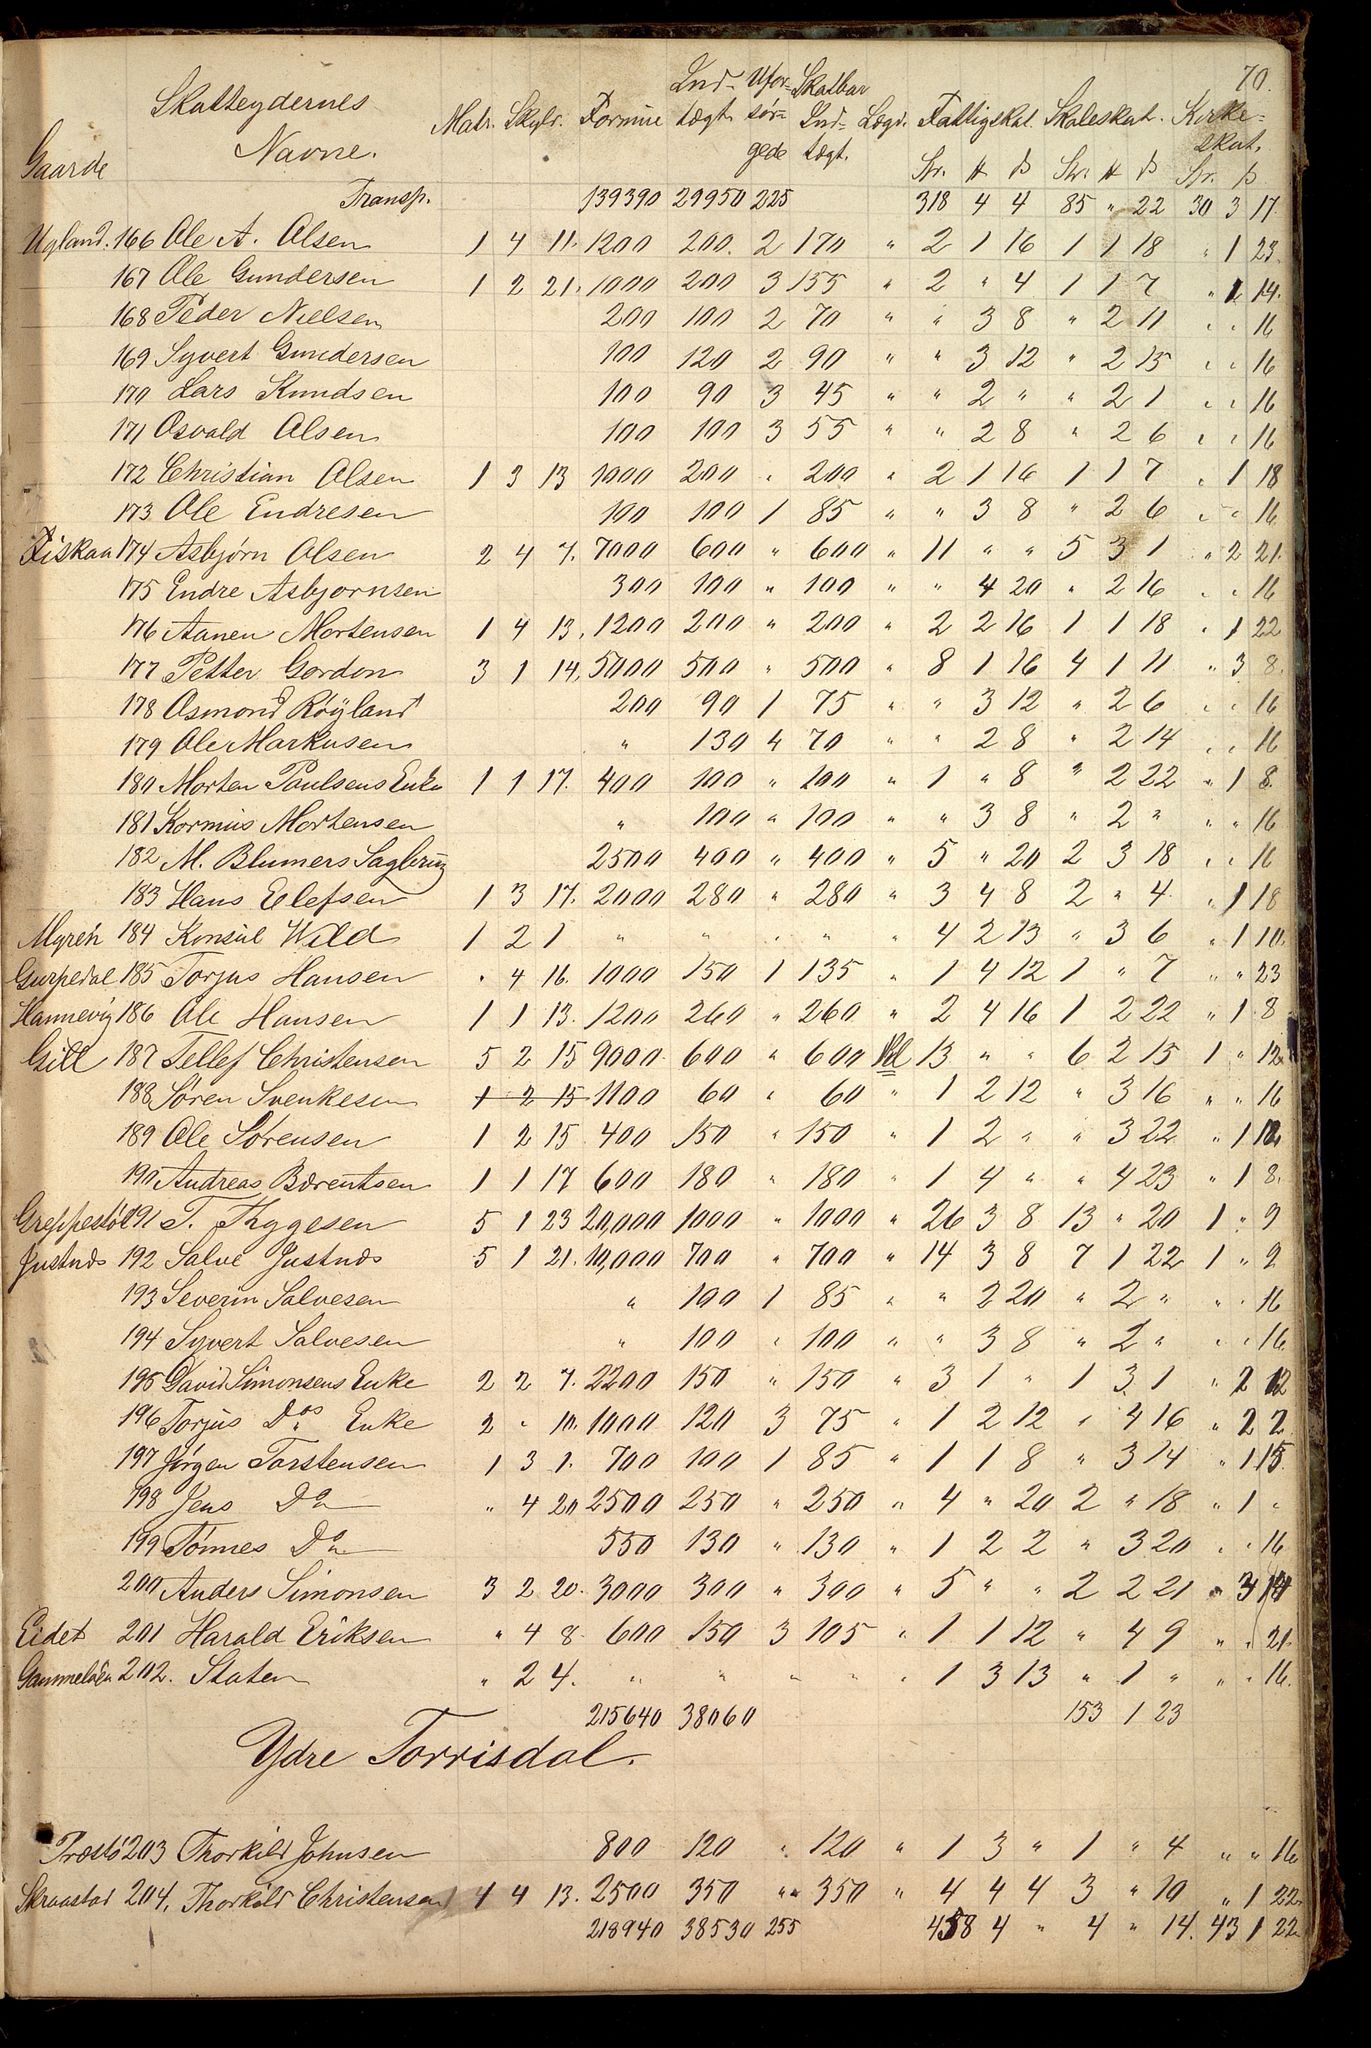 70.
Gaarde Skatteydernes Navne. Matr. Skyld. Formue Ind- tægt. Ufor- sør- gede Skatbar Ind- tægt. Lægd. Fattigskat. Skoleskat. Kirke- skat.
Spr. # ß Spr. # ß Spr. ß
Transp. 139390 29950 225 318 4 4 85 " 22 30 3 17.
Ugland. 166 Ole A. Olsen 1 4 11. 1200 200. 2 170 " 2 1 16 1 1 18 " 1 23.
167 Ole Gundersen 1 2 21. 1000 200 3 155 " 2 " 4 1 1 7 " 1 14.
168 Peder Nielsen 200 100 2 70 " " 3 8 " 2 11 " " 16
169 Syvert Gundersen 100 120 2 90 " " 3 12 " 2 15 " " 16
170 Lars Knudsen 100 90 3 45 " " 2 " " 2 1 " " 16
171 Osvald Olsen 100 100 3 55 " " 2 8 " 2 6 " " 16
172 Christian Olsen 1 3 13 1000 200 " 200 " 2 1 16 1 1 7 " 1 18
173 Ole Endresen 100 100 1 85 " " 3 8 " 2 6 " " 16
Fiskaa 174 Asbjørn Olsen 2 4 7. 7000 600 " 600 " 11 " " 5 3 1 " 2 21.
175 Endre Asbjørnsen 300 100 " 100 " " 4 20 " 2 16 " " 16
176 Aanen Mortensen 1 4 13. 1200 200 " 200 " 2 2 16 1 1 18 " 1 22
177 Petter Gordon 3 1 14. 5000 500 " 500 " 8 1 16 4 1 11 " 3 8.
178 Osmond Röyland 200 90 1 75 " " 3 12 " 2 6 " " 16
179 Ole Markusen " 130 4 70 " " 2 8 " 2 14 " " 16
180 Morten Paulsens Enke 1 1 17. 400 100 " 100 " 1 " 8 " 2 22 " 1 8.
181 Kornius Mortensen " 100 " 100 " " 3 8 " 2 " " " 16
182 M. Blumers Sagbrug 2500 400 " 400 " 5 " 20 2 3 18 " " 16
183 Hans Elefsen 1 3 17. 2000 280 " 280 " 3 4 8 2 " 4 " 1 18
Myren 184 Konsul Wild 1 2 1 " " " " 4 2 13 " 3 6 " 1 10.
Gurpedal 185 Torjus Hansen " 4 16. 1000 150 1 135 " 1 4 12 1 " 7 " " 23
Hannevig 186 Ole Hansen 1 1 13. 1200 260 " 260 " 2 4 16 1 2 22 " 1 8
Gill 187 Tellef Christensen 5 2 15 9000 600 " 600 13 " " 6 2 15 1 " 12
188 Søren Svenkesen 1 2 15 1100 60 " 60 " 1 2 12 " 3 16 " " 16
189 Ole Sørensen 1 2 15. 400 150 " 150 " 1 2 " " 3 22 " 1 12
190 Andreas Bærentsen 1 1 17 600 180 " 180 " 1 4 " " 4 23 " 1 8.
Greppestöl 191 T. Thygesen 5 1 23 20,000 1000 " 1000 " 26 3 8 13 " 20 1 " 9
Justnæs 192 Salve Justnæs 5 1 21. 10,000 700 " 700 " 14 3 8 7 1 22 1 " 9
193 Severin Salvesen " 100 1 85 " " 2 20 " 2 " " " 16
194 Syvert Salvesen " 100 " 100 " " 3 8 " 2 " " " 16
195 David Simonsens Enke 2 2 7. 2200 150 " 150 " 3 1 " 1 3 1 " 2 12
196 Torjus Dos Enke 2 " 10. 1000 120 3 75 " 1 2 12 " 4 16 " 2 2
197 Jørgen Torstensen 1 3 1. 700 100 1 85 " 1 1 8 " 3 14 " 1 15
198 Jens Do " 4 20 2500 250 " 250 " 4 " 20 2 " 18 " 1 "
199 Tønnes Do 550 130 " 130 " 1 2 2 " 3 20 " " 16
200 Anders Simonsen 3 2 20. 3000 300 " 300 " 5 " " 2 2 21 " 3 14
Eidet 201 Harald Eriksen " 4 8. 600 150 3 105 " 1 1 12 " 4 9 " " 21.
202. Staten " 2 4. " " " " " 1 3 13 " 1 " " " 16.
215640 38060 153 1 23
Ydre Torrisdal.
Præstö 203 Thorkild Johnsen 800 120 " 120 " 1 3 " 1 " 4 " " 16
Skraastad 204. Thorkild Christensen 4 4 13. 2500 350 " 350 " 4 4 4 3 " 10 " 1 22
218940 38530 255 458 4 " 4 " 14. 43 1 22